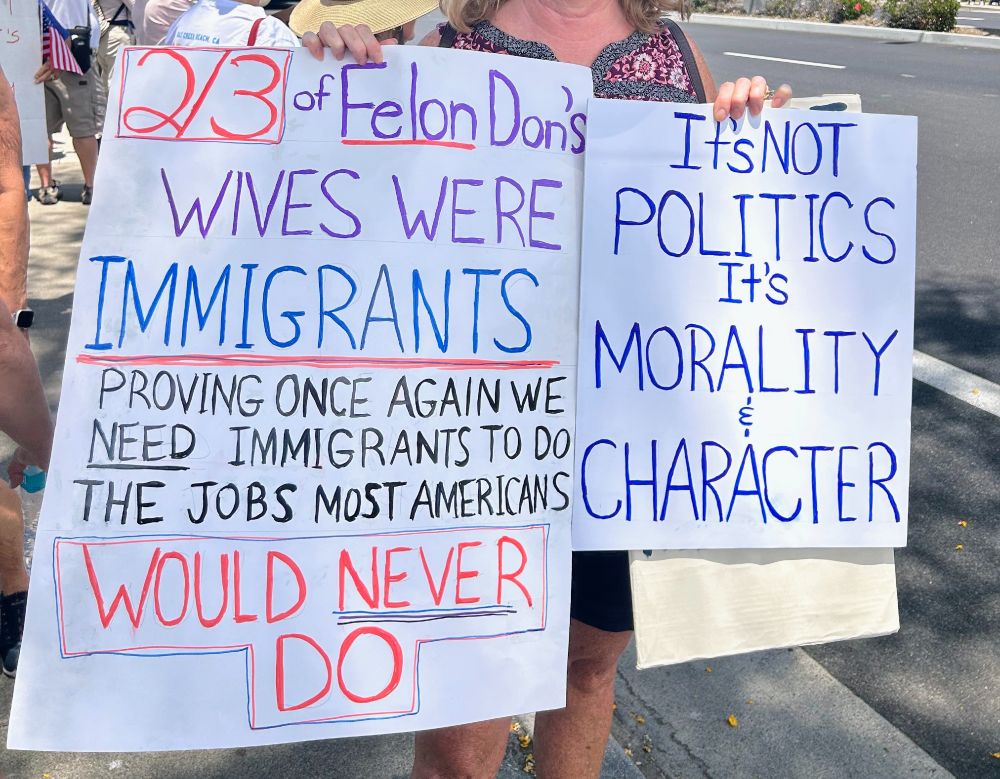 2/3 of Felon Don's
WIVES WERE
IMMIGRANTS
PROVING ONCE AGAIN WE
NEED IMMIGRANTS TO DO
THE JOBS MOST AMERICANS
WOULD NEVER
DO
It's NOT
POLITICS
It's
MORALITY
&
CHARACTER